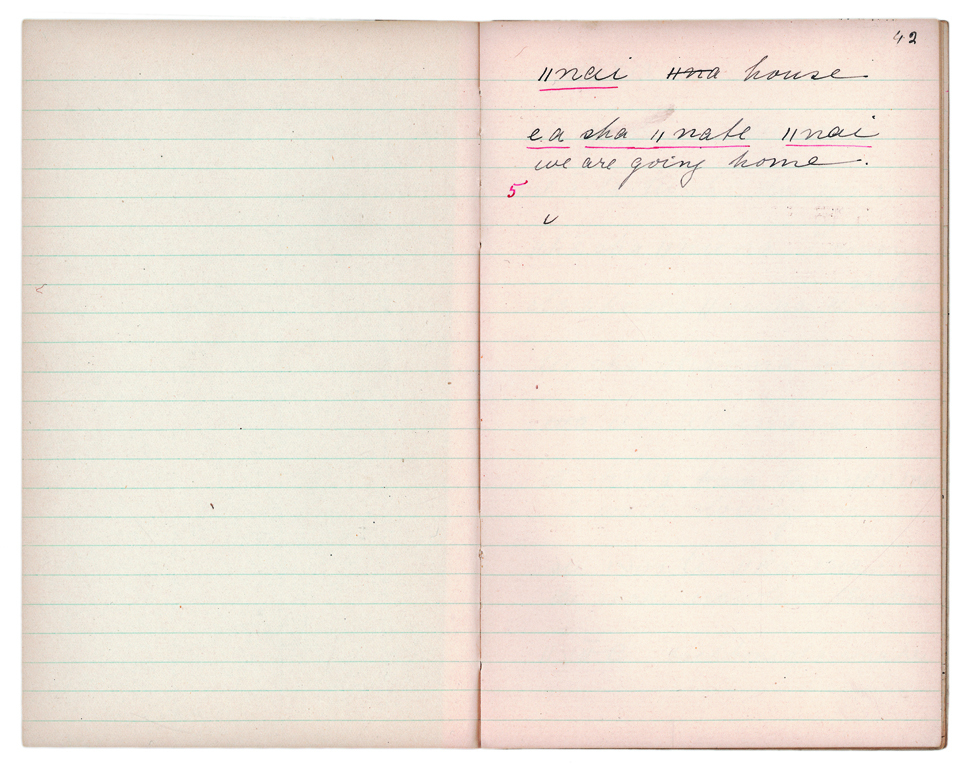 42
ǁnai ǁna house
e.a sha ǁnate ǁnai
we are going home.
5